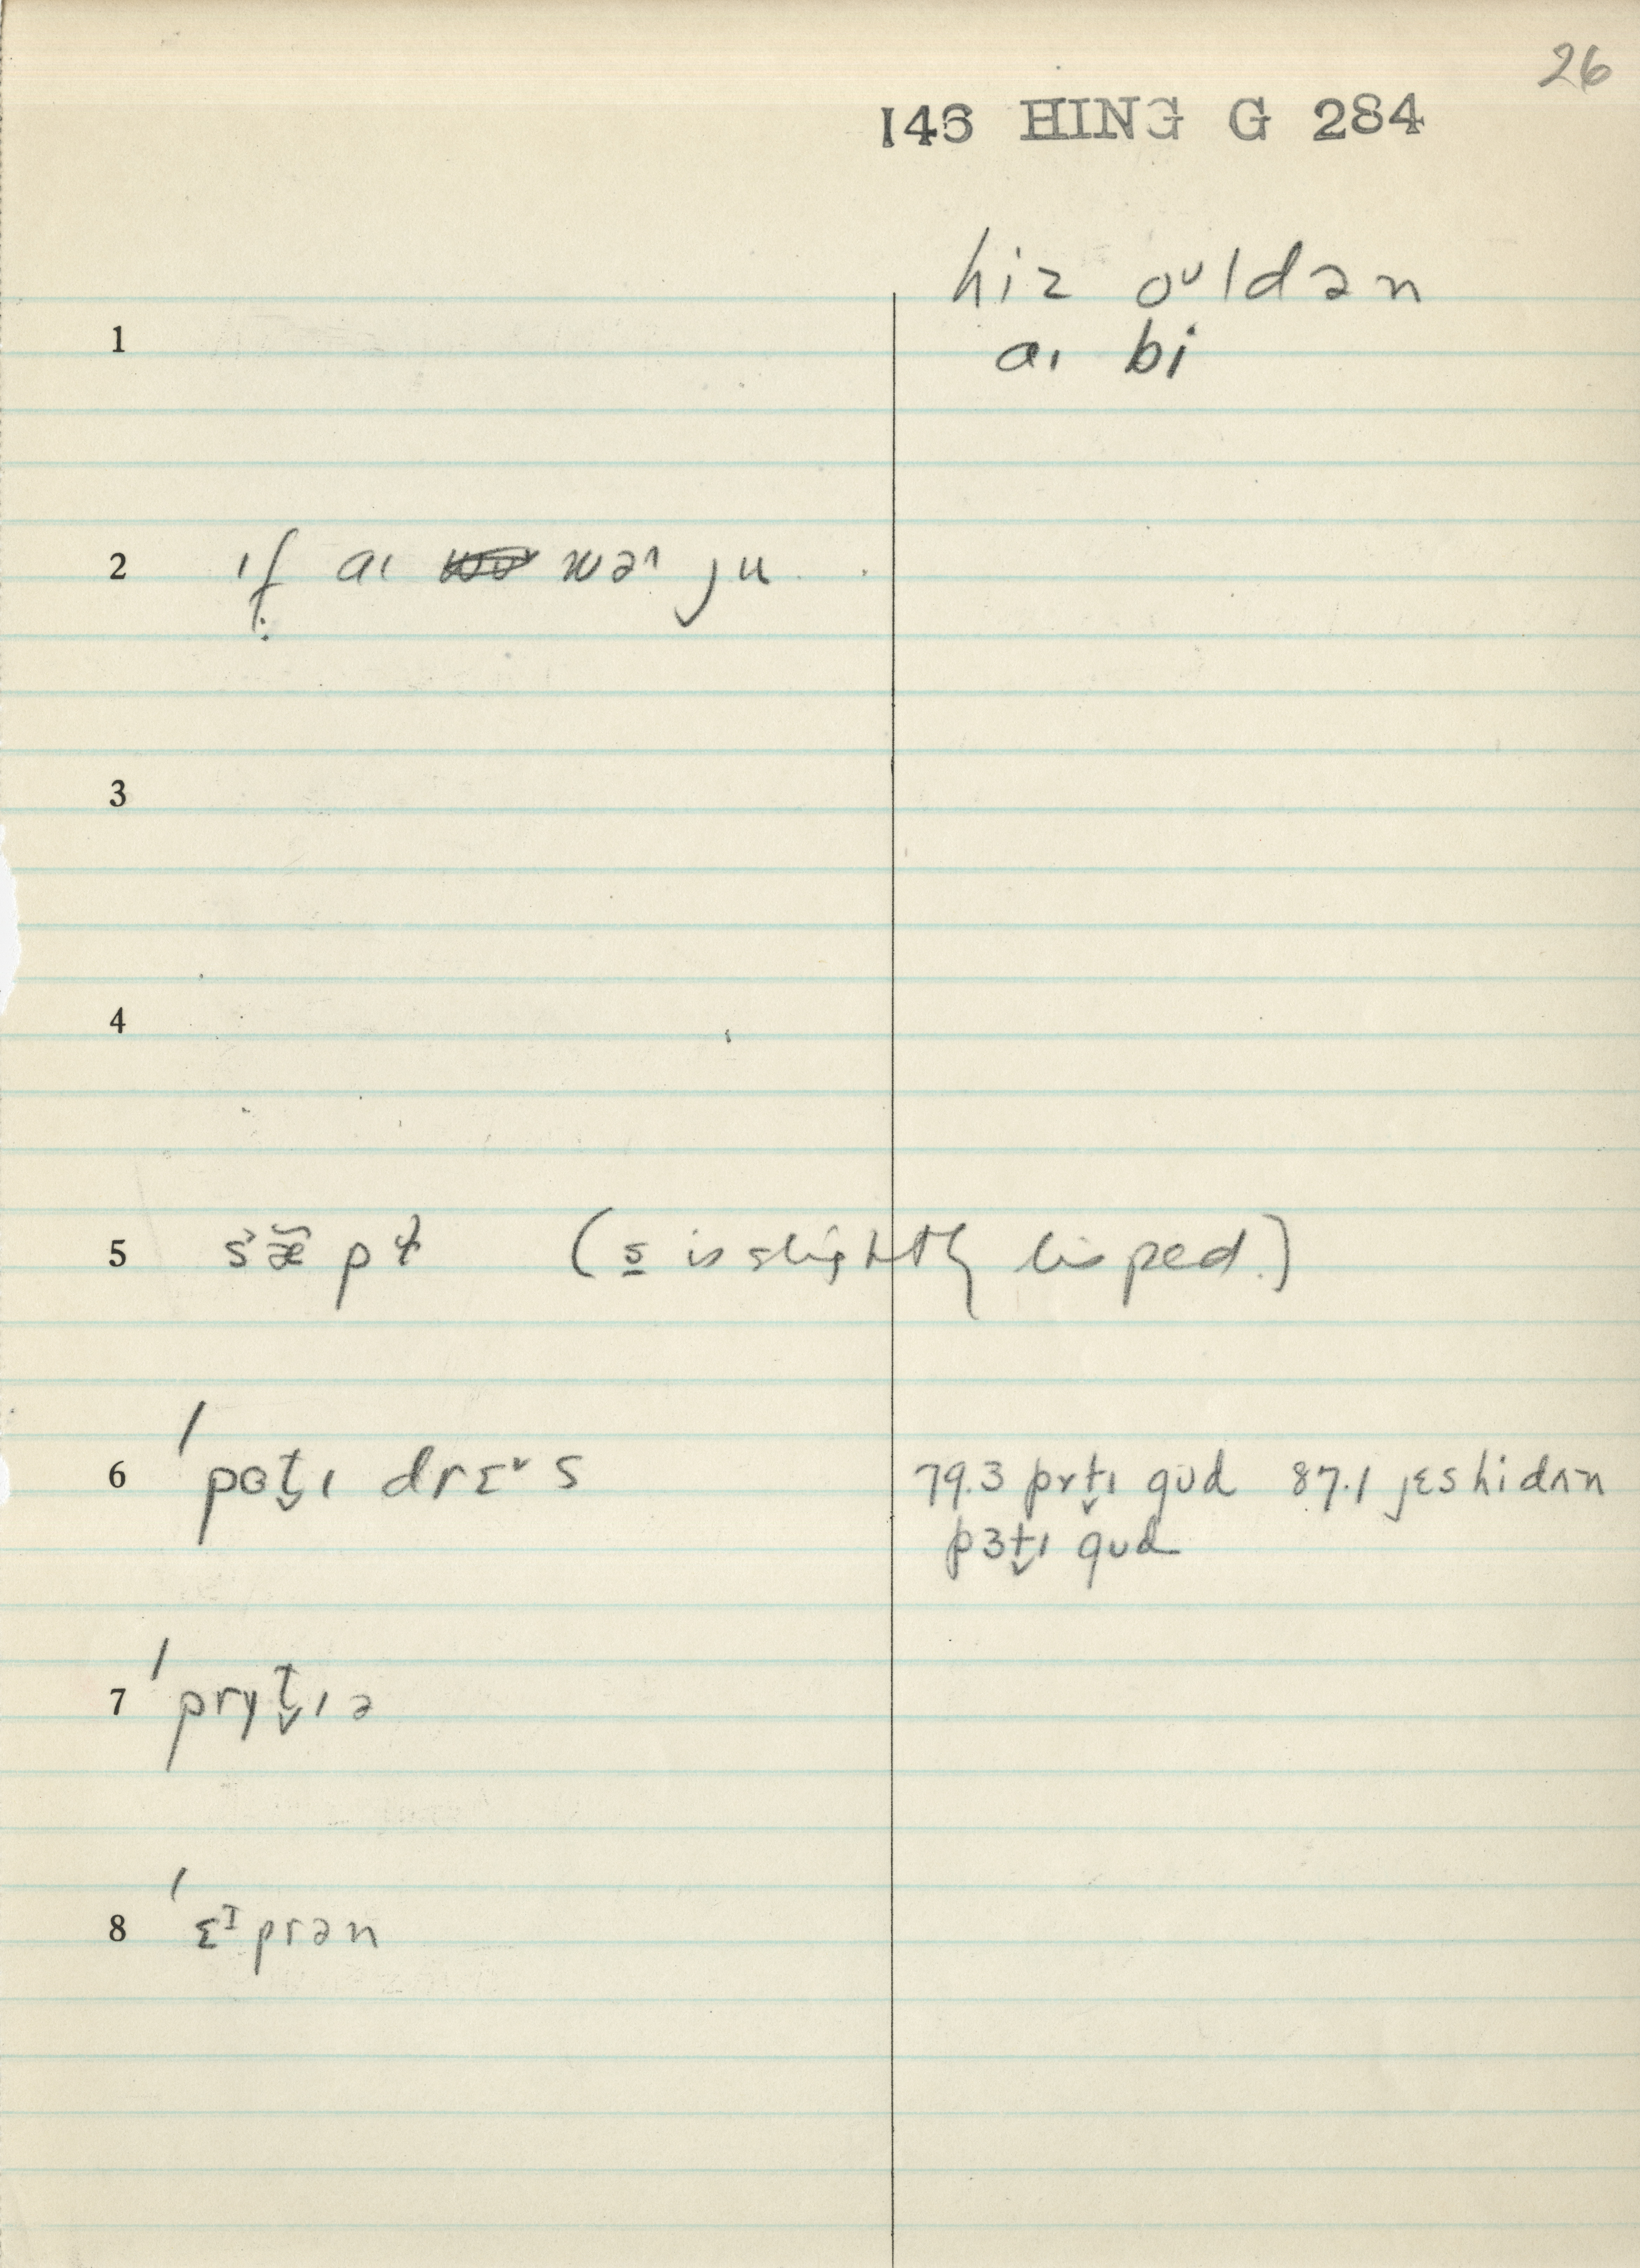 26
146 HING G 284
hiz oᵘldən
1 aɪ bi
2 ɪf aɪ wəɹ ju
3
4
5 (s is slightly lisped.)
6 pɵt̬ɪ drɛᵛs 79.3 prt̬ɪ gud 87.1 jɛs hi dʌn
pɜt̬ɪ gud
7 pryt̬ɪə
8 ɛᴵprən